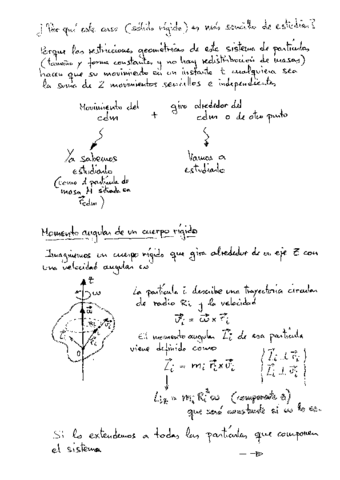 ¿Por qué este caso (sólido rígido) es más sencillo de estudiar?
Porque las restricciones geométricas de este sistema de partículas,
(tamaño y forma constantes, y no hay redistribución de masas)
hacen que su movimiento en un instante t cualquiera sea
la suma de 2 movimientos sencillos e independientes,
Movimiento del cdm + giro alrededor del cdm o de otro punto
Ya sabemos estudiarlo
(como 1 partícula de masa M situada en r⃗cdm)
Vamos a estudiarlo
Momento angular de un cuerpo rígido
Imaginemos un cuerpo rígido que gira alrededor de un eje Z con
una velocidad angular ω
La partícula i describe una trayectoria circular
de radio Ri y la velocidad
v⃗i = ω⃗ × r⃗i
El momento angular L⃗i de esa partícula
viene definido como
L⃗i = mi r⃗i × v⃗i
L⃗i ⊥ r⃗i
L⃗i ⊥ v⃗i
Liz = mi Ri² ω (componente z)
que será constante si ω lo es.
Si lo extendemos a todas las partículas que componen
el sistema
z
ω
ω⃗
Ri
v⃗i
L⃗i
r⃗i
O